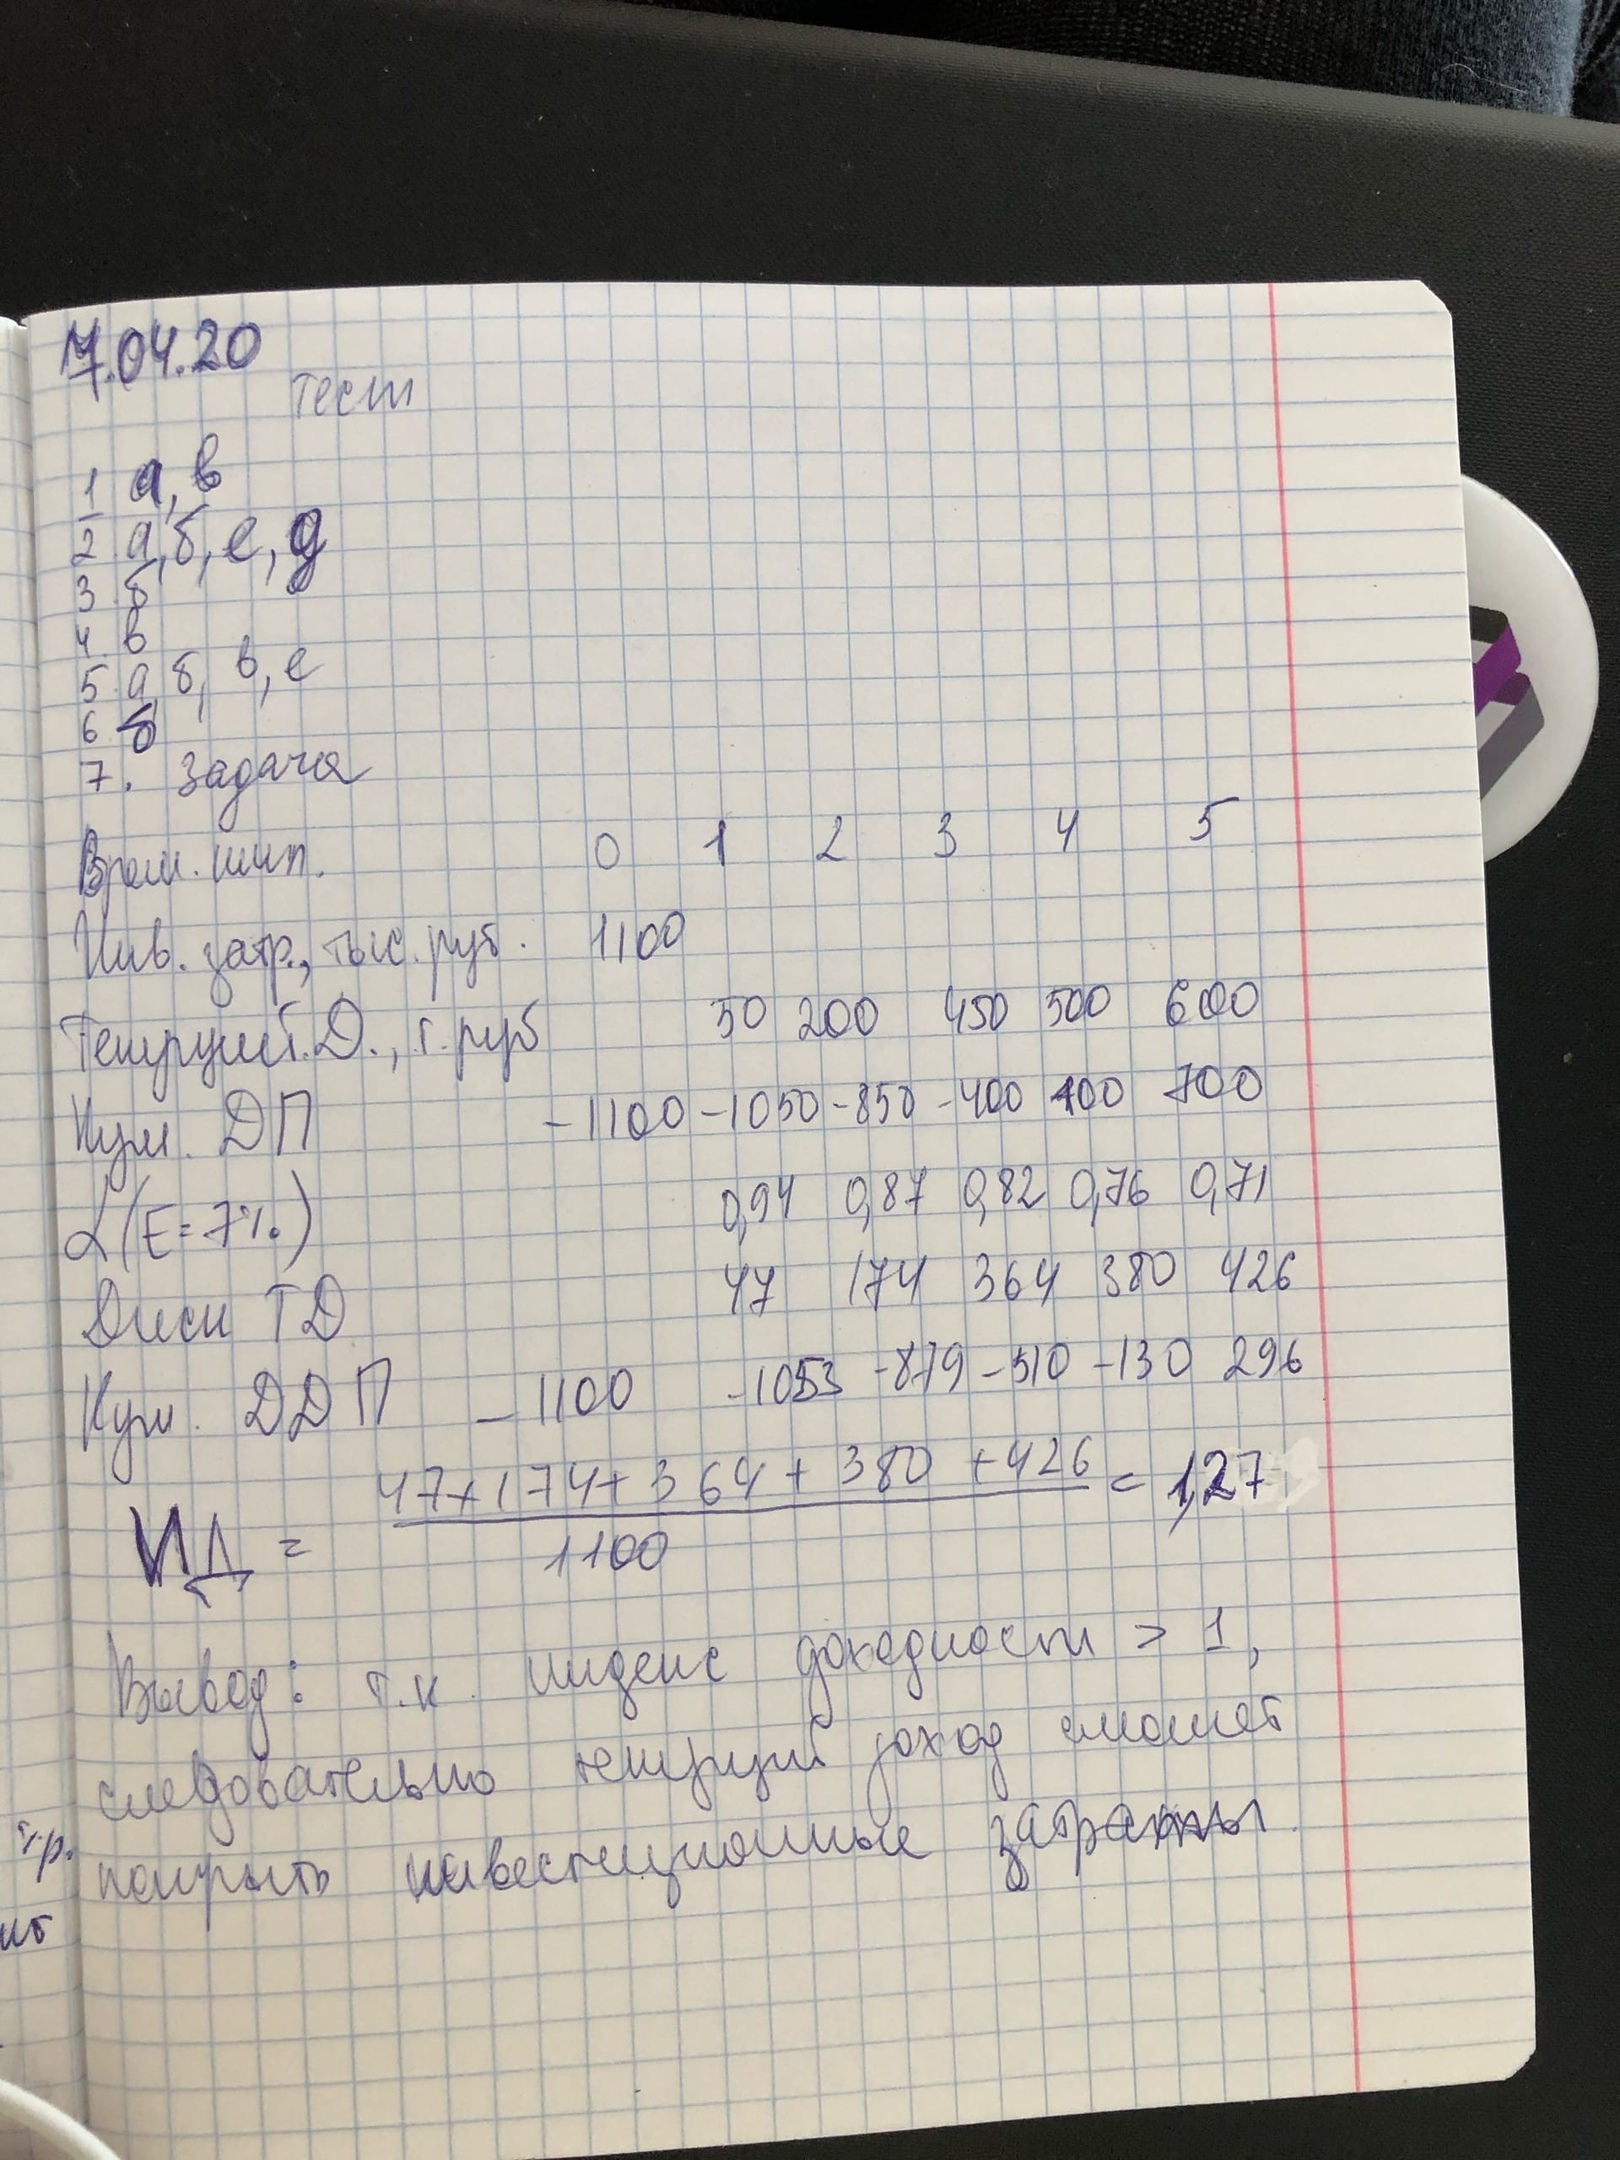 7.04.20
Тест
1 а, в
2 а, б, е, д
3 б
4. в
5. а, б, в, е
6 б
7. Задача
Врем. инт. 0 1 2 3 4 5
Инв. затр., тыс. руб. 1100
Текущий Д., т. руб 50 200 450 500 600
Кум. ДП -1100 -1050 -850 -400 100 700
α (E=7%) 0,94 0,87 0,82 0,76 0,71
Диск ТД 47 174 364 380 426
Кум. ДДП -1100 -1053 -879 -510 -130 296
ИД = 47+174+364+380+426 / 1100 = 1,27
Вывод: т.к. индекс доходности > 1,
следовательно текущий доход сможет
покрыть инвестиционные затраты.
т.р.